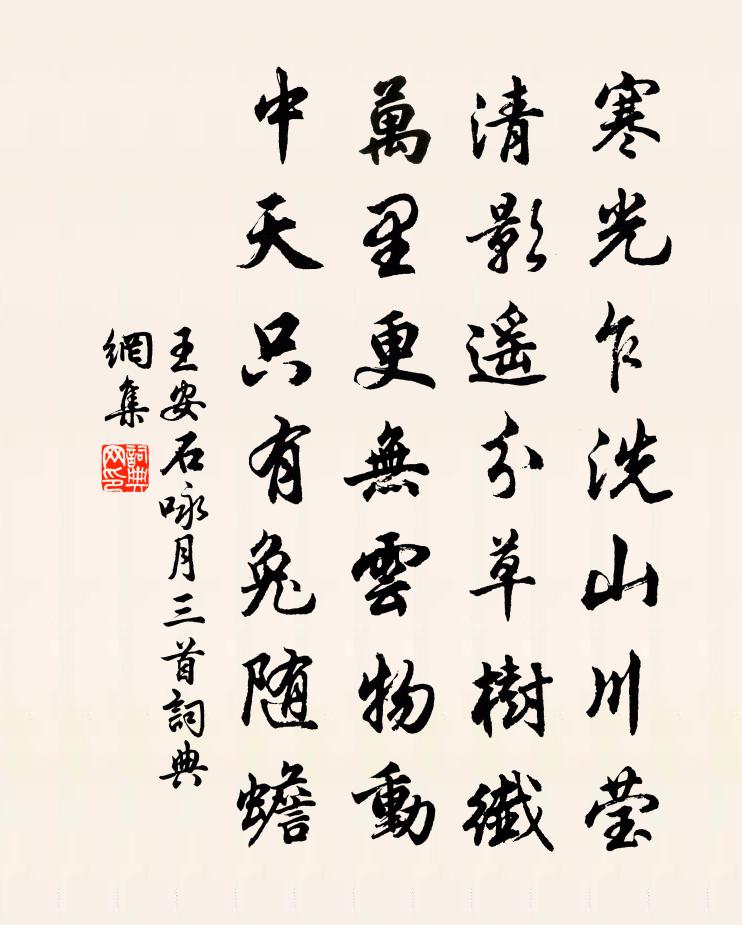 寒光乍洗山川莹
清影遥分草樹纖
萬里更無雲物動
中天只有兔随蟾
王安石咏月三首詞典
網集
詞典
网印